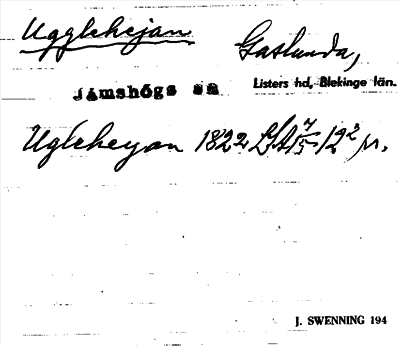 Ugglehejan
Gaslunda,
Jämshögs sn
Listers hd, Blekinge län.
Ugleheyan 1822 LSA 7/5 12² pr.
J. SWENNING 194